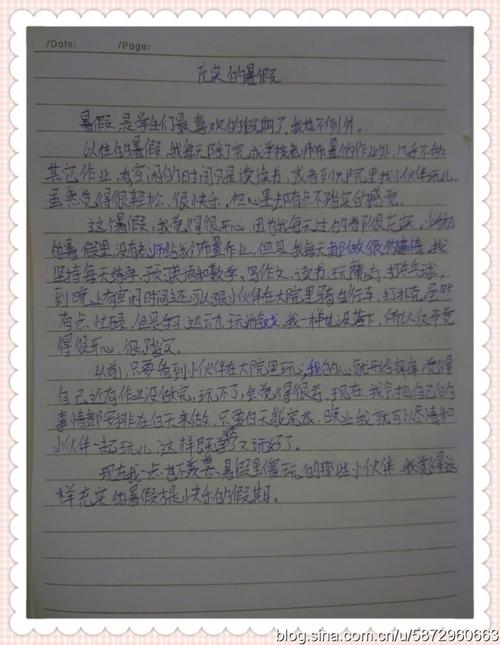 /Date: /Page:
充实的暑假
暑假是学生们最喜欢的假期了,我也不例外。
以往的暑假,我每天除了完成学校老师布置的作业外,几乎不做
其它作业,有空闲的时间只是读读书,或者到大院里找小伙伴玩儿,
虽然觉得很轻松、很快乐,但心里却有点不踏实的感觉。
这个暑假,我觉得很开心,因为我每天过的都很充实,
的暑假里没有老师给我们布置作业,但是我每天都做很多事情,我
坚持每天练字、预习英语和数学、写作文、读书、玩魔方、打乒乓球,
到晚上有空闲时间还可以跟小伙伴在大院里骑自行车、打扑克,虽然
有点忙碌,但是学习、运动、玩游戏,我一样也没落下,所以仅觉
得很开心、很踏实。
以前,只要看到小伙伴在大院里玩,我的心就开始痒痒,觉得
自己还有作业没做完,玩不了,会觉得很 现在,我会把自己的
事情都安排在白天来做,只要白天能完成,晚上我就可以尽情和
小伙伴一起玩儿,这样既学了又玩好了。
现在我一点也不羡慕暑假里傻玩的那些小伙伴,我觉得这
样充实的暑假才是快乐的假期。
blog.sina.com.cn/u/5872960663